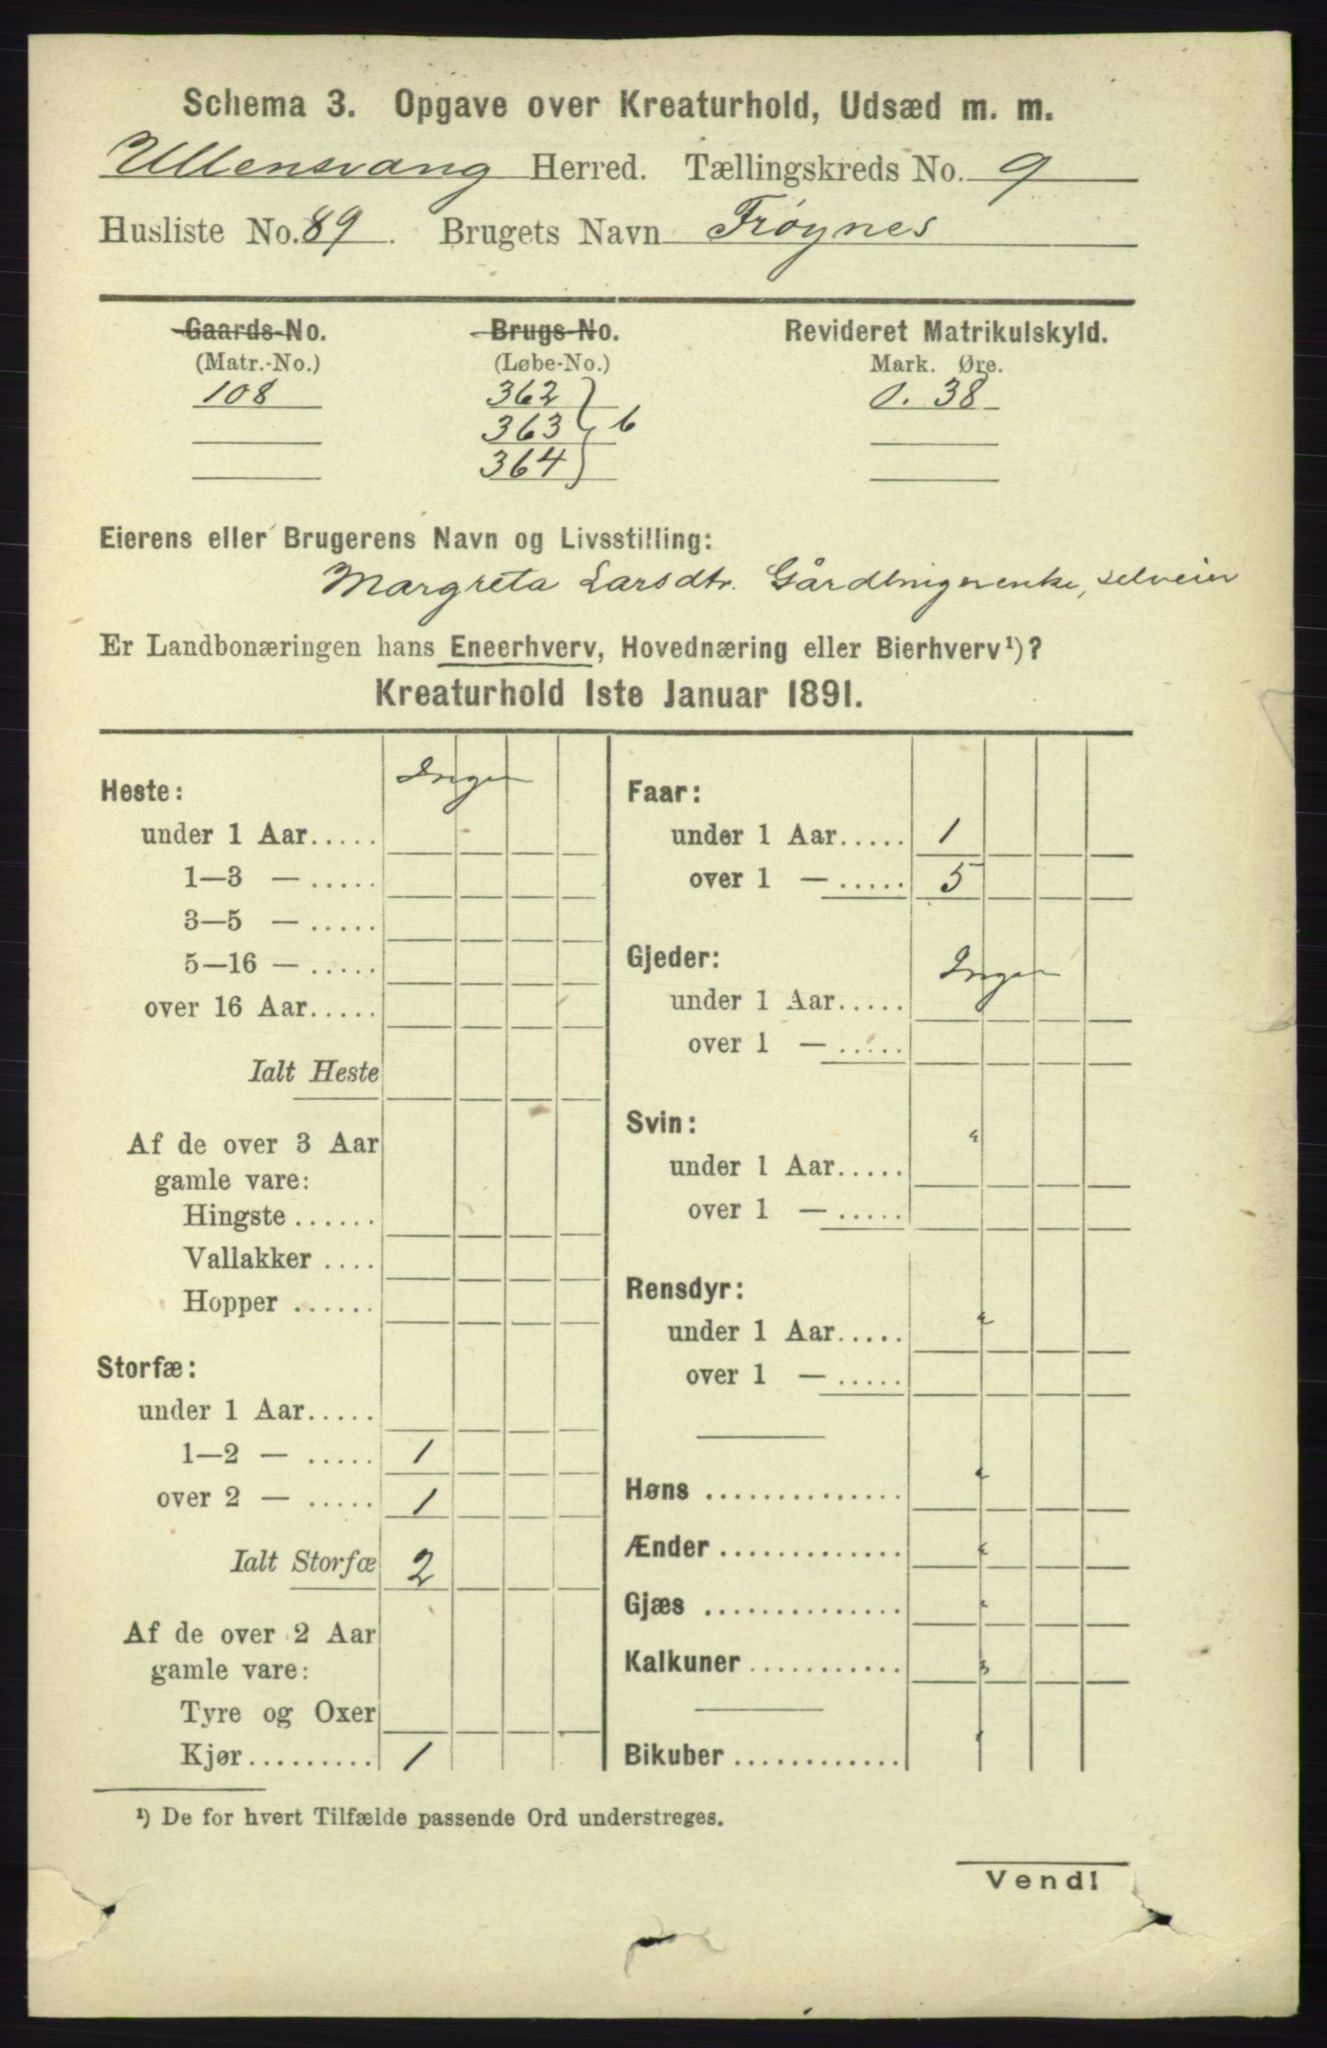 Schema 3. Opgave over Kreaturhold, Udsæd m. m.
Ullensvang Herred. Tællingskreds No. 9
Husliste No. 89. Brugets Navn Frøynes
Gaards-No. Brugs-No. Revideret Matrikulskyld.
(Matr.-No.) (Løbe-No.) Mark. Øre.
108 362 0. 38
363 } 6
364
Eierens eller Brugerens Navn og Livsstilling:
Margreta Larsdtr. Gårdbrugerenke, selveier
Er Landbonæringen hans Eneerhverv, Hovednæring eller Bierhverv¹)?
Kreaturhold 1ste Januar 1891.
Heste: Ingen
under 1 Aar.....
1—3 — .....
3—5 — .....
5—16 — .....
over 16 Aar.....
Ialt Heste
Af de over 3 Aar
gamle vare:
Hingste ......
Vallakker ....
Hopper ......
Storfæ:
under 1 Aar.....
1—2 — ..... 1
over 2 — ..... 1
Ialt Storfæ 2
Af de over 2 Aar
gamle vare:
Tyre og Oxer
Kjør......... 1
Faar:
under 1 Aar..... 1
over 1 — ..... 5
Gjeder: Ingen
under 1 Aar.....
over 1 — .....
Svin:
under 1 Aar.....
over 1 — .....
Rensdyr:
under 1 Aar.....
over 1 — .....
Høns ..............
Ænder .............
Gjæs ..............
Kalkuner ...........
Bikuber ............
¹) De for hvert Tilfælde passende Ord understreges.
Vend!